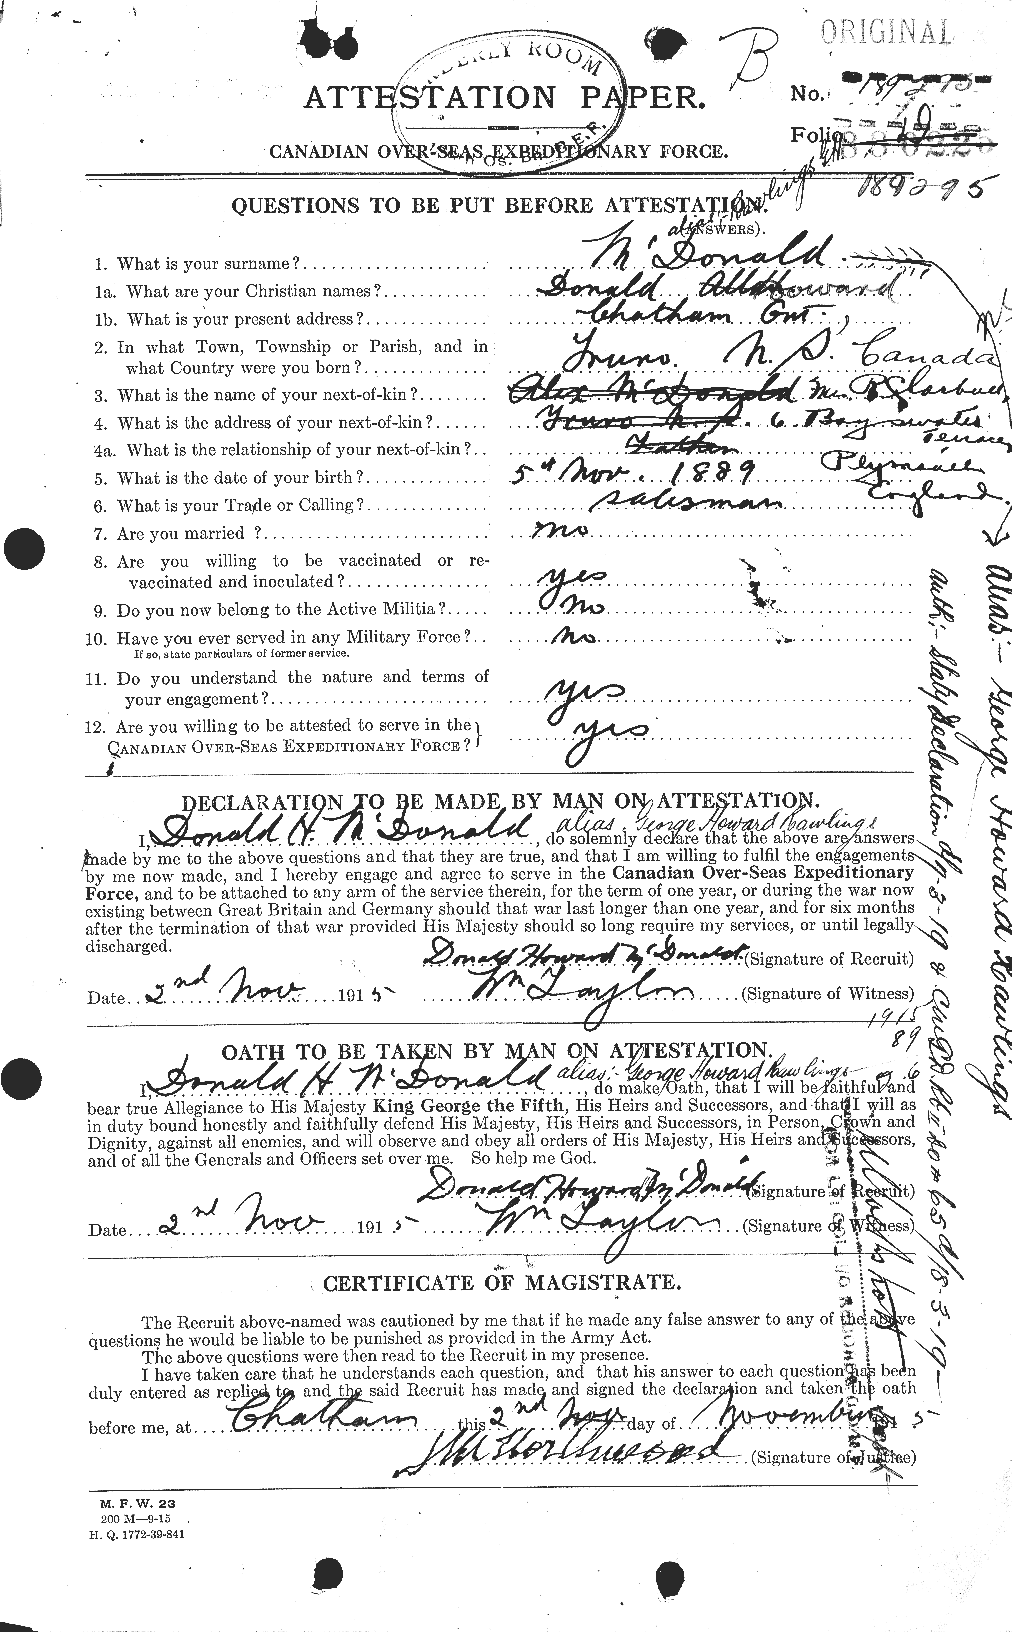 ORIGINAL
B
ORDERLY ROOM
ATTESTATION PAPER.
No. 189295
Folio. 19
CANADIAN OVER-SEAS EXPEDITIONARY FORCE.
189295
QUESTIONS TO BE PUT BEFORE ATTESTATION.
alias:- Rawlings G.H.
(ANSWERS).
1. What is your surname? McDonald
1a. What are your Christian names? Donald Howard
1b. What is your present address? Chatham Ont.,
2. In what Town, Township or Parish, and in
what Country were you born? Truro. N.S. Canada
3. What is the name of your next-of-kin? Alex McDonald Mrs
4. What is the address of your next-of-kin? Truro N.S. 6 Bayswater
Terrace
4a. What is the relationship of your next-of-kin? Father
Plymouth
5. What is the date of your birth? 5th Nov. 1889
England
6. What is your Trade or Calling? salesman
7. Are you married? no
8. Are you willing to be vaccinated or re-
vaccinated and inoculated? yes
9. Do you now belong to the Active Militia? no
10. Have you ever served in any Military Force? no
If so, state particulars of former service.
11. Do you understand the nature and terms of
your engagement? yes
12. Are you willing to be attested to serve in the
CANADIAN OVER-SEAS EXPEDITIONARY FORCE? yes
alias:- George Howard Rawlings
DECLARATION TO BE MADE BY MAN ON ATTESTATION.
alias: George Howard Rawlings
I, Donald H. McDonald, do solemnly declare that the above are answers
made by me to the above questions and that they are true, and that I am willing to fulfil the engagements
by me now made, and I hereby engage and agree to serve in the Canadian Over-Seas Expeditionary
Force, and to be attached to any arm of the service therein, for the term of one year, or during the war now
existing between Great Britain and Germany should that war last longer than one year, and for six months
after the termination of that war provided His Majesty should so long require my services, or until legally
discharged.
Donald Howard McDonald (Signature of Recruit)
Date 2nd Nov 1915 Wm Taylor (Signature of Witness)
1915
89
OATH TO BE TAKEN BY MAN ON ATTESTATION.
alias:- George Howard Rawlings
I, Donald H McDonald, do make Oath, that I will be faithful and
bear true Allegiance to His Majesty King George the Fifth, His Heirs and Successors, and that I will as
in duty bound honestly and faithfully defend His Majesty, His Heirs and Successors, in Person, Crown and
Dignity, against all enemies, and will observe and obey all orders of His Majesty, His Heirs and Successors,
and of all the Generals and Officers set over me. So help me God.
Donald Howard McDonald (Signature of Recruit)
Date 2nd Nov 1915 Wm Taylor (Signature of Witness)
CERTIFICATE OF MAGISTRATE.
The Recruit above-named was cautioned by me that if he made any false answer to any of the above
questions he would be liable to be punished as provided in the Army Act.
The above questions were then read to the Recruit in my presence.
I have taken care that he understands each question, and that his answer to each question has been
duly entered as replied to, and the said Recruit has made and signed the declaration and taken the oath
before me, at Chatham this 2nd Nov day of November 1915
(Signature of Justice)
M. F. W. 23
200 M—9-15
H. Q. 1772-39-841